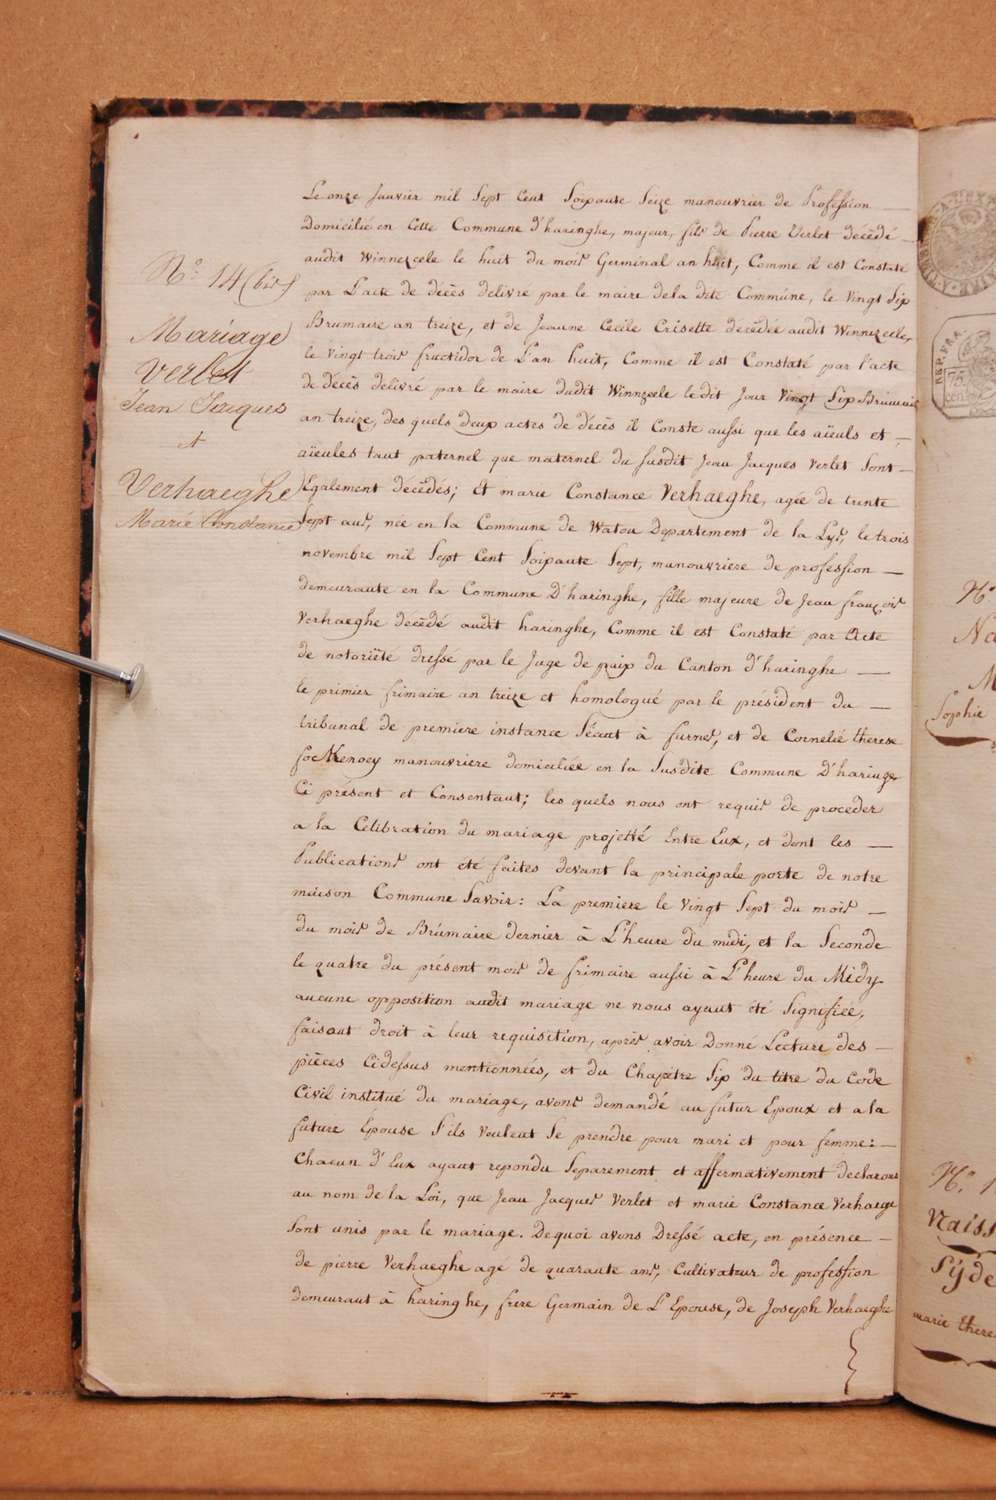 Le onze Janvier mil Sept Cent Soixante Seize manouvrier de Profession
Domicilié en Cette Commune D'haringhe, majeur, fils de Pierre Verlet décédé
audit Winnezeele le huit du mois Germinal an huit, Comme il est Constaté
par L'acte de décès delivré par le maire de la dite Commune, le Vingt Six
Brumaire an treize, et de Jeanne Cecile Crisette décédée audit Winnezeele,
le Vingt trois fructidor de L'an huit, Comme il est Constaté par l'acte
de décès delivré par le maire dudit Winnzeele ledit Jour Vingt Six Brumaire
an treize, des quels deux actes de décès il Conste aussi que les aïeuls et
aïeules tant paternel que maternel du susdit Jean Jacques Verlet Sont
Egalement décédés; Et marie Constance Verhaeghe, agée de trente
Sept ans, née en la Commune de Watou Departement de la Lys, le trois
novembre mil Sept Cent Soixante Sept, manouvriere de profession
demeurante en la Commune D'haringhe, fille majeure de Jean françois
Verhaeghe décédé audit haringhe, Comme il est Constaté par Acte
de notoriété dressé par le Juge de paix du Canton d'haringhe
le primier frimaire an treize et homologué par le président du
tribunal de premiere instance Séant à furnes, et de Cornelie therese
manouvriere domiciliée en la Susdite Commune D'haringe
Ci present et Consentant; les quels nous ont requis de proceder
a la Célibration du mariage projetté Entre Eux, et dont les
Publications ont été faites devant la principale porte de notre
maison Commune Savoir: La premiere le Vingt Sept du mois
du mois de Brûmaire dernier à L'heure du midi, et la Seconde
le quatre du présent mois de frimaire aussi à L'heure du Midy
aucune opposition audit mariage ne nous ayant été Signifiée,
faisant droit à leur requisition, après avoir Donné Lecture des
pièces Cidessus mentionnées, et du Chapitre Six du titre du Code
Civil institué du mariage, avons demandé au futur Epoux et a la
future Epouse S'ils Veulent Se prendre pour mari et pour femme:
Chacun d'Eux ayant repondu Separement et affermativement declarons
au nom de la Loi, que Jean Jacques Verlet et marie Constance Verhaege
Sont unis par le mariage. De quoi avons Dressé acte, en présence
de pierre Verhaeghe agé de quarante ans, Cultivateur de profession
demeurant à haringhe, frere Germain de L'Epouse, de Joseph Verhaeghe
N.° 14 (bis)
Mariage
Verlet
Jean Jacques
+
Verhaeghe
Marie Constance
N.°
Na
M
Sophie
N.° 1
Naiss
Sÿde
marie there
REP. FRA.
75
cen